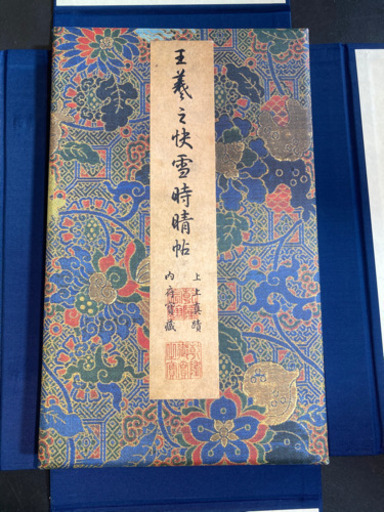 王羲之快雪時晴帖
上上真蹟
內府寶藏